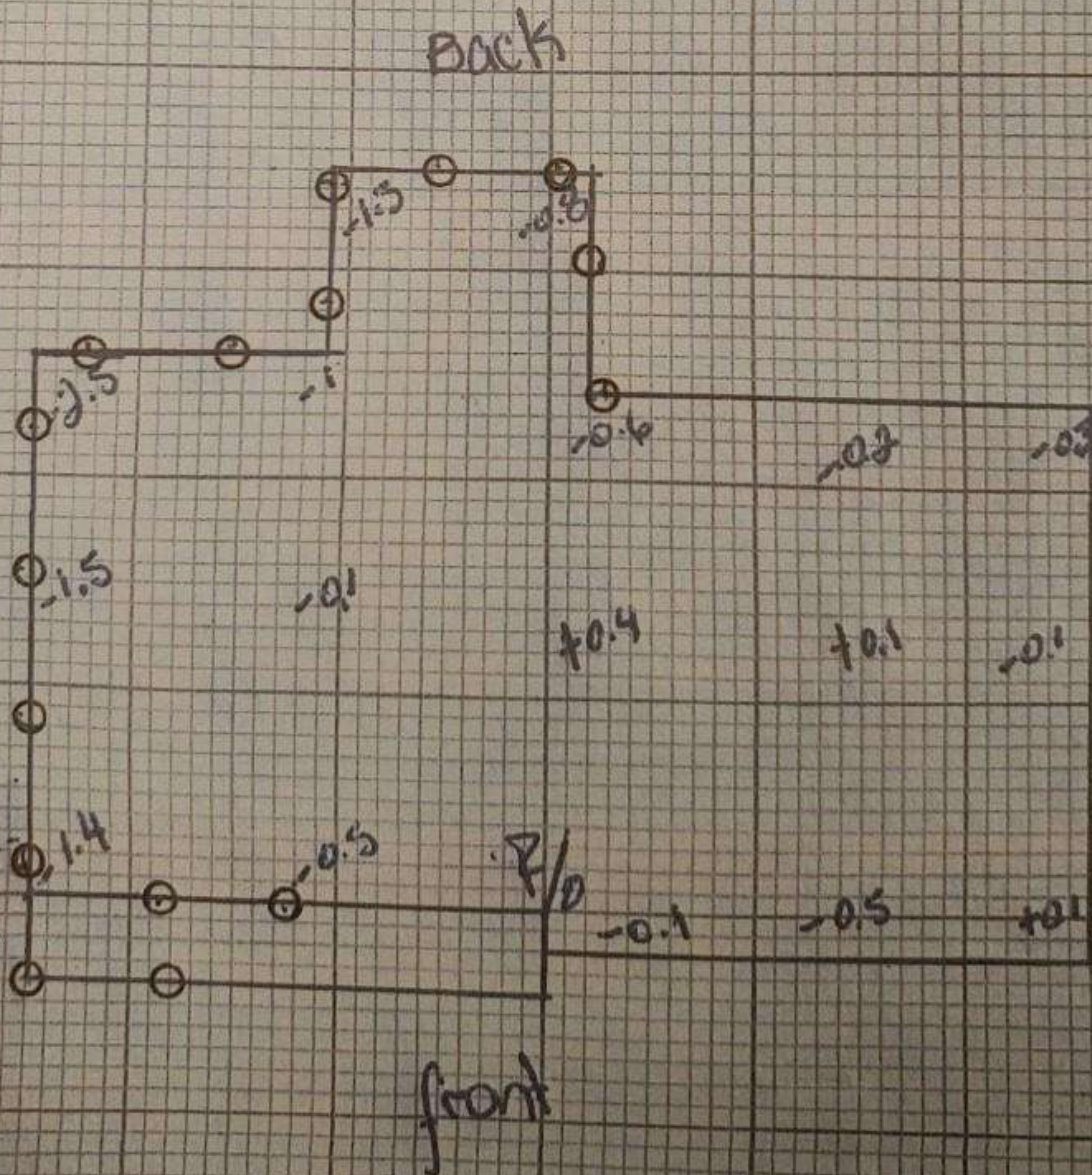 Back
-1.3
-0.8
-2.5
-1
-0.6
-0.2
-1.5
-0.1
+0.4
+0.1
-0.1
-1.4
-0.5
-0.1
-0.5
front